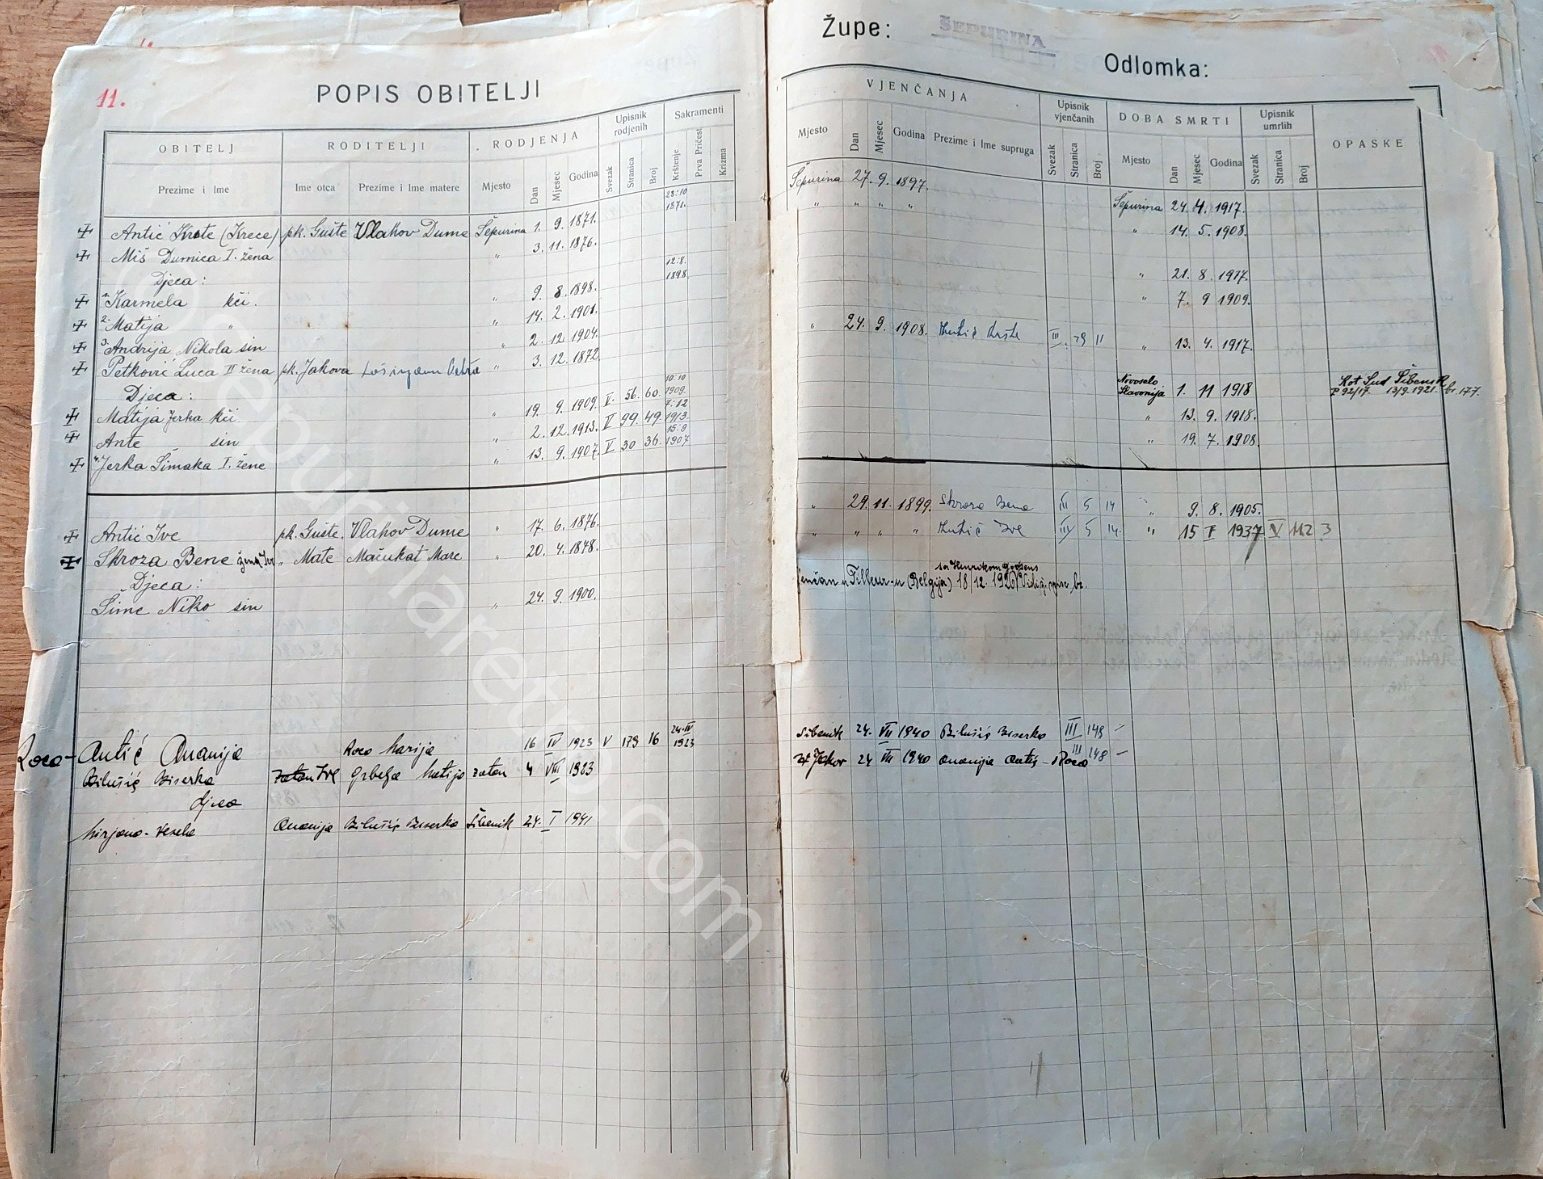 Župe: ŠEPURINA
Odlomka:
11. POPIS OBITELJI
OBITELJ RODITELJI RODJENJA Upisnik rodjenih Sakramenti
Prezime i Ime Ime otca Prezime i Ime matere Mjesto Dan Mjesec Godina Svezak Stranica Broj Krštenje Prva Pričest Krizma
VJENČANJA Upisnik vjenčanih DOBA SMRTI Upisnik umrlih OPASKE
Mjesto Dan Mjesec Godina Prezime i Ime supruga Svezak Stranica Broj Mjesto Dan Mjesec Godina Svezak Stranica Broj
Antić Krste (Kreca) pk. Guste Vlahov Dume Šepurina 1. 9. 1871. 28.10 1871.
Miš Dumica I. žena " 3. 11. 1876.
Djeca:
1. Karmela kći. " 9. 8. 1898. 12.8. 1898.
2. Matija " " 14. 2. 1901.
3. Andrija Nikola sin " 2. 12. 1904.
Petković Luca II žena pk. Jakova " 3. 12. 1872.
Djeca:
Matija Jerka kći " 19. 9. 1909. V. 56. 60. 10.10 1909.
Ante sin " 2. 12. 1913. V 99. 49. 7.12 1913.
4. Jerka Šimaka I. žene " 13. 9. 1907. V 30 36. 15.9 1907
Antić Ive pk. Guste. Vlahov Dume " 17. 6. 1876.
Skroza Bene žena Ive " Mate Mačukat Mare " 20. 4. 1878.
Djeca:
Šime Niko sin " 24. 9. 1900.
Roca - Antić Ananija Roca Marija 16 IV 1923 V 179 16 24-IV 1923
Bilušić Biserka Zaton Ive Grbelja Matija Zaton 4 VIII 1903
djeca
Mirjana-Vesela Ananija Bilušić Biserka Šibenik 24. I 1941
Šepurina 27. 9. 1897. Šepurina 24. 4. 1917.
" " " " " 14. 5. 1908.
" 21. 8. 1917.
" 7. 9 1909.
" 24. 9. 1908. Antić Krste III. 29 11 " 13. 4. 1917.
Novoselo Slavonija 1. 11 1918 Kot. Sud Šibenik 13/9. 1921. br. 177.
" 13. 9. 1918.
" 19. 7. 1908.
" 29. 11. 1899. Skroza Bena III 5 14 " 9. 8. 1905.
" " " " Antić Ive III 5 14. " 15 I 1937 V 112 3
u Tilleur-u (Belgija) 18/12. 1926
Šibenik 24. VII 1940 Bilušić Biserka III 148 -
24 III 1940 Ananija Antić - Roca III 148 -
©sepurinaretro.com